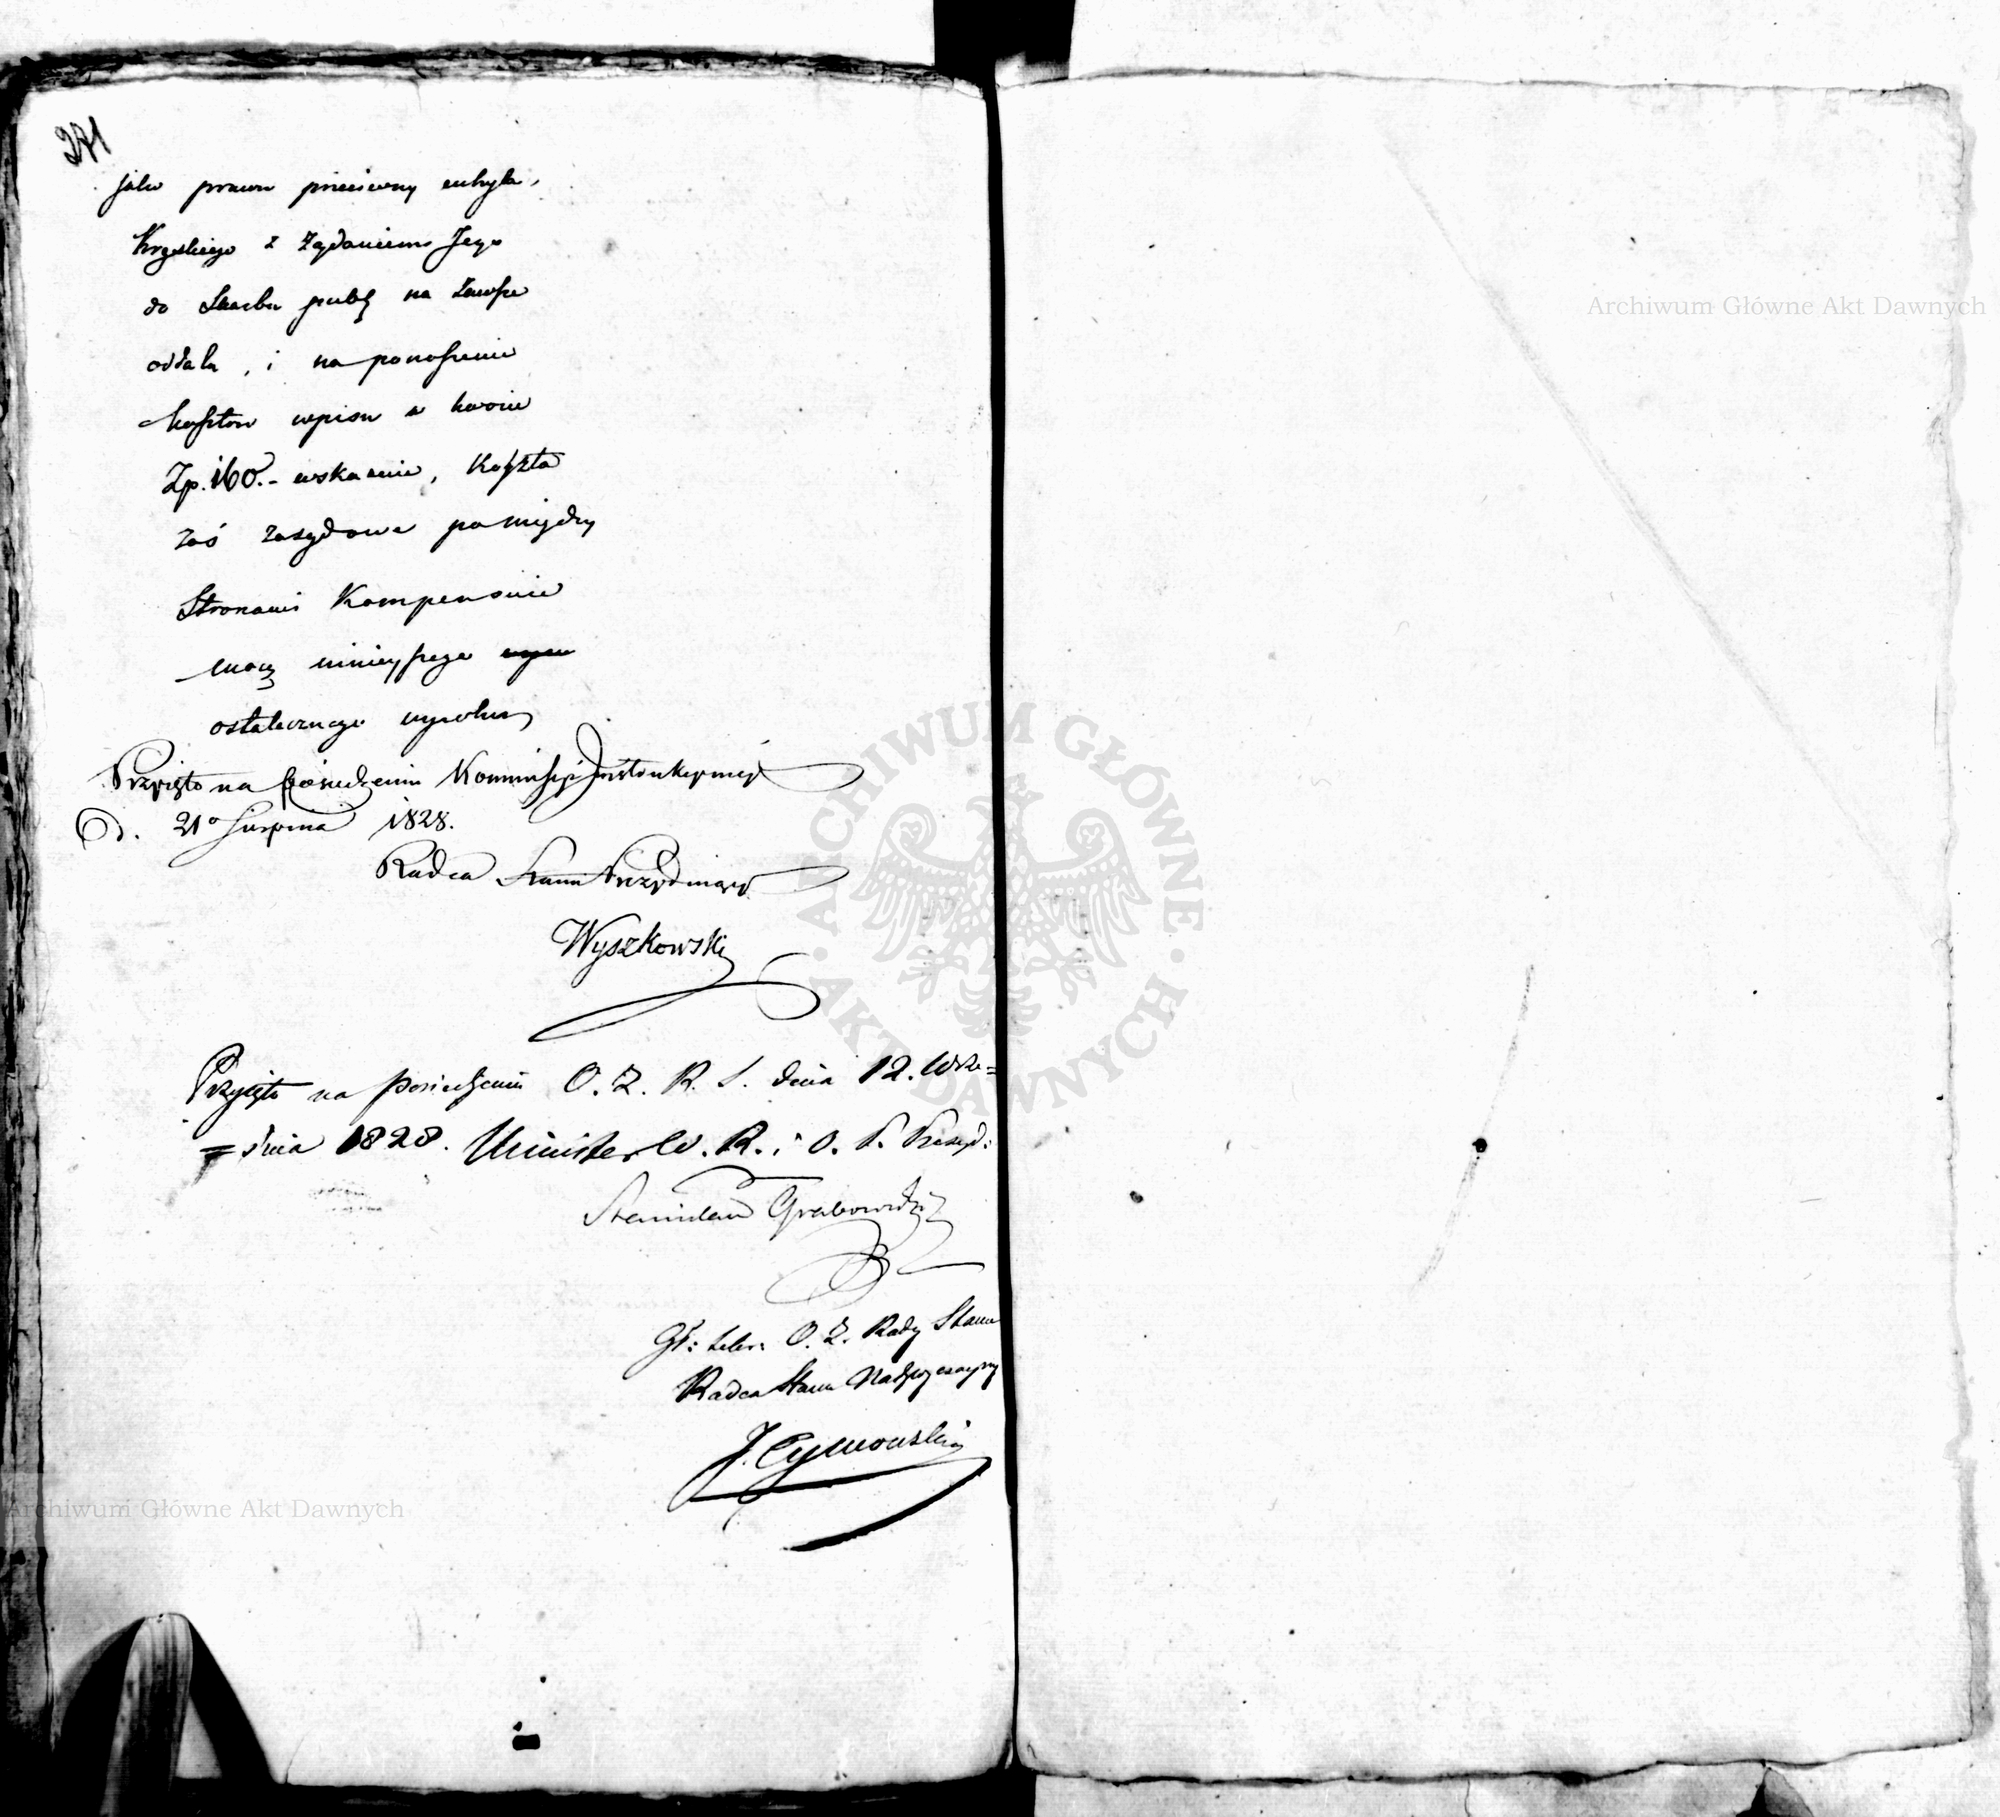 271
jako prawu przeciwny uchyla,
Kręskiego z Żądaniem Jego
do Skarbu publ na zawsze
oddala, i na ponoszenie
kosztow wpisu w kwocie
Zp. 160.- wskazuie, Koszta
zaś zasądowe pomiędzy
Stronami Kompensuie
mocą ninieyszego
ostatecznego wyroku
Przyięto na posiedzeniu Kommissyi Jnstrukcyiney
d. 21o Sierpnia 1828.
Radca Stanu Prezyduiący
Wyszkowski
Przyięto na posiedzeniu O. Z. R. S. dnia 12. Wrze=
=śnia 1828. Minister W. R. i O. P. Prezyd:
Stanisław Grabowski
Gł: Sekr: O. Z. Rady Stanu
Radca Stanu Nadzwyczayny
J. Cymowski
Archiwum Główne Akt Dawnych
Archiwum Główne Akt Dawnych
ARCHIWUM GŁÓWNE · AKT DAWNYCH ·